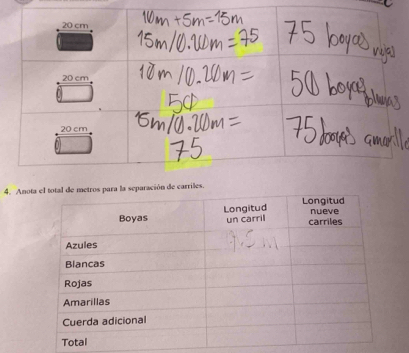 20 cm
10m + 5m = 15m
15m/0.20m = 75
75 boyas rojas
20 cm
10m/0.20m =
50
50 boyas blancas
20 cm
15m/0.20m =
75
75 boyas amarilla
4. Anota el total de metros para la separación de carriles.
Boyas Longitud un carril Longitud nueve carriles
Azules 17.5m
Blancas
Rojas
Amarillas
Cuerda adicional
Total